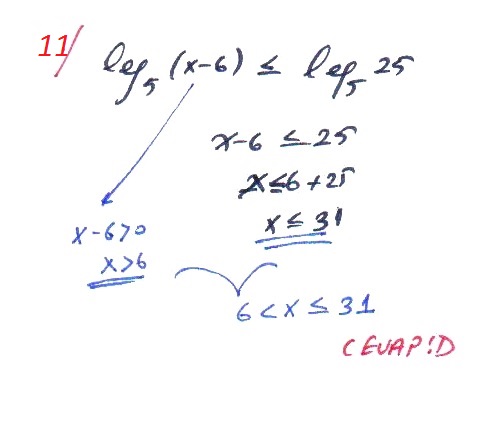 11/ log₅ (x-6) ≤ log₅ 25
x-6 ≤ 25
x ≤ 6 + 25
x ≤ 31
x-6>0
x>6
6 < x ≤ 31
CEVAP:D